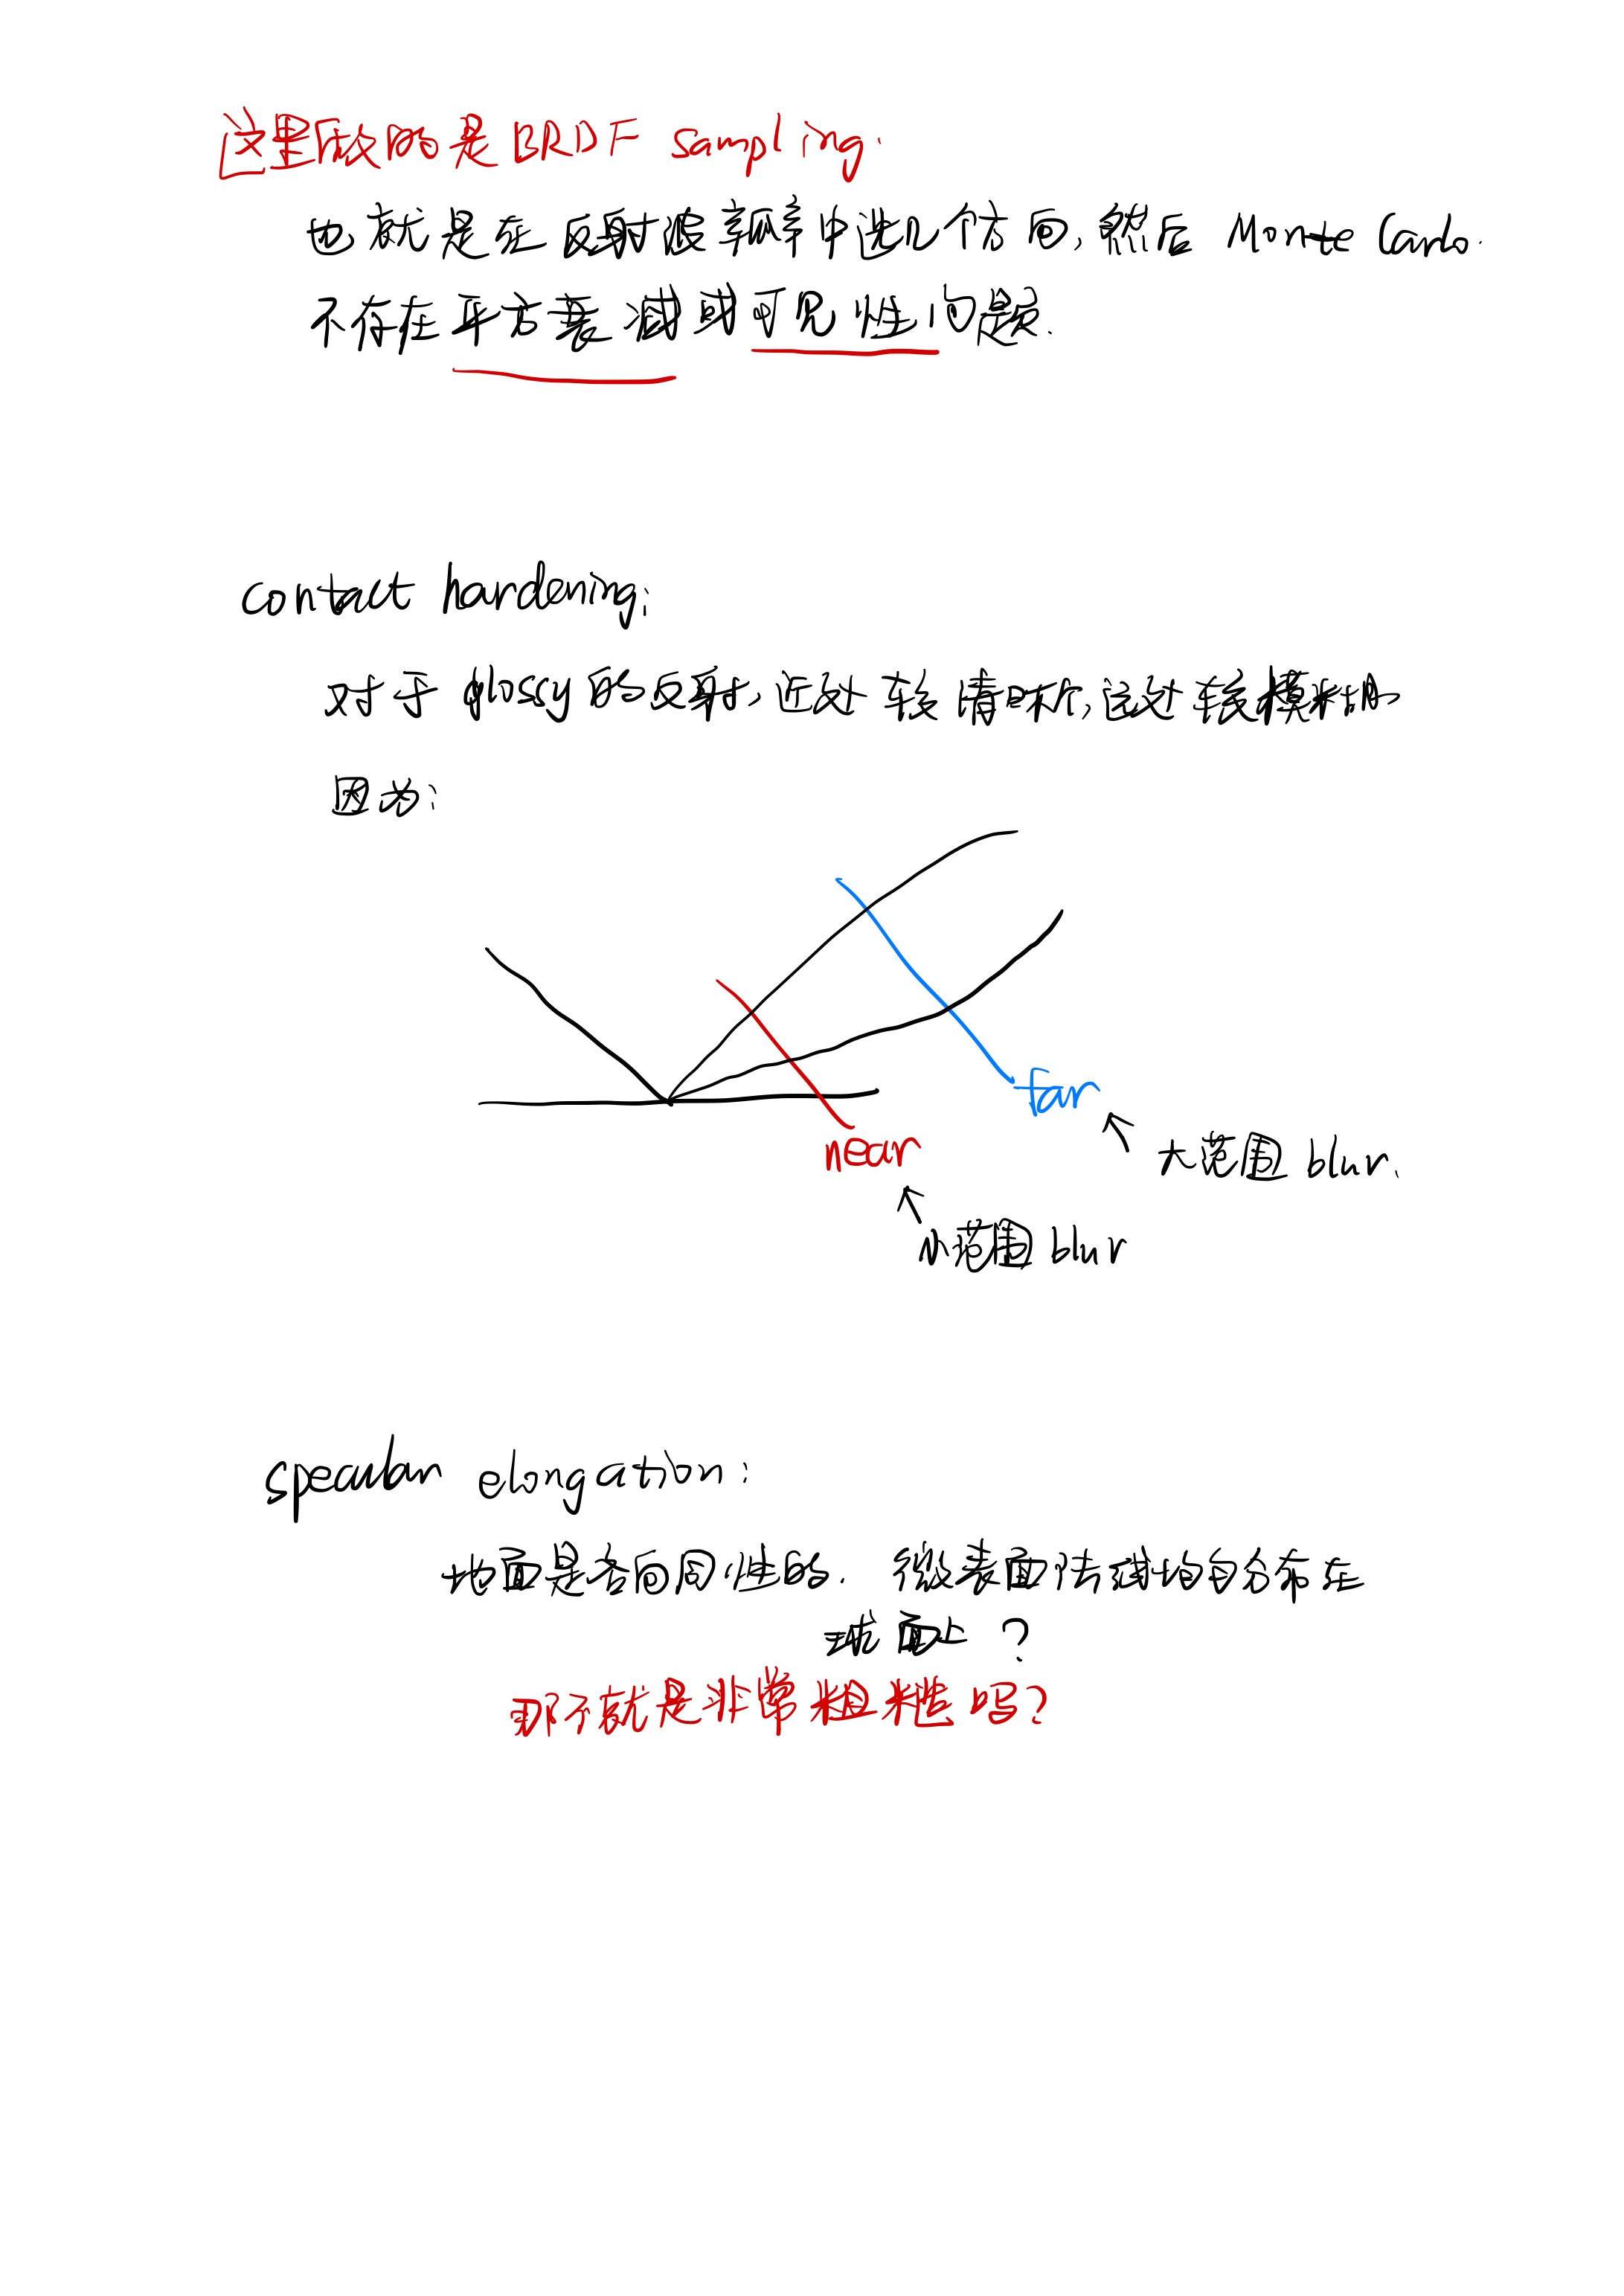 这里做的是 BRDF sampling.
也就是在反射波瓣中选几个方向,然后 Monte Carlo.
不存在平方衰减或可见性问题.
contact hardening:
对于 glossy 的反射,近处较清晰,远处较模糊
因为:
far
near
大范围 blur.
小范围 blur
specular elongation:
地面是各向同性的. 微表面法线均匀分布在
球面上?
那不就是非常粗糙吗?